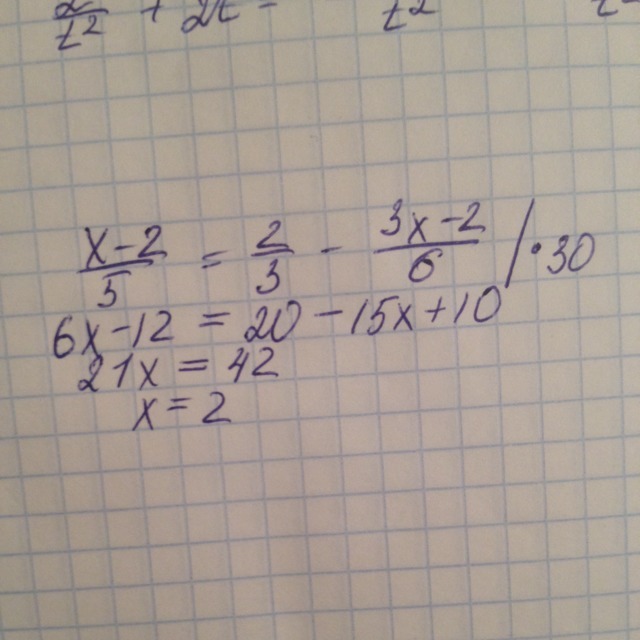 x-2/5 = 2/3 - 3x-2/6 /·30
6x-12 = 20-15x+10
21x = 42
x = 2